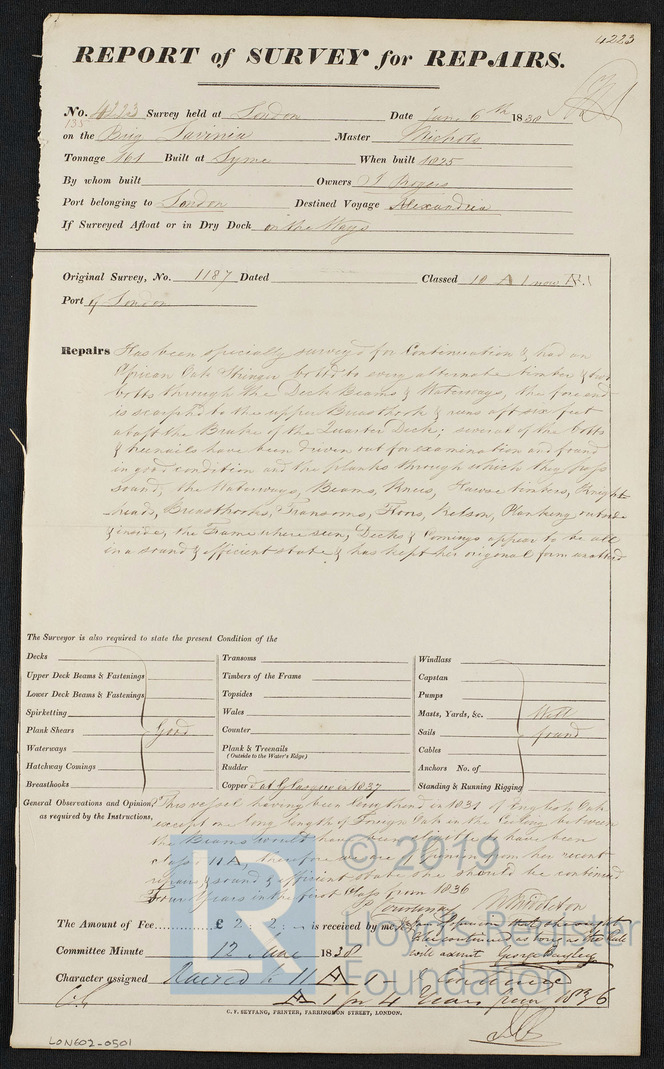 4223
REPORT of SURVEY for REPAIRS.
No. 4223 Survey held at London Date June 6th 1838
135
on the Brig Lavinia Master Nichols
Tonnage 161 Built at Lyme When built 1825
By whom built Owners J Rogers
Port belonging to London Destined Voyage Alexandria
If Surveyed Afloat or in Dry Dock on the Ways
Original Survey, No. 1187 Dated Classed 10 A 1 now Æ.1
Port of London
Repairs Has been specially survey'd for Continuation & had an
African Oak Stringer bolted to every alternate timber & two
bolts through the Deck Beams & Waterways, the fore end
is scarph'd to the upper Breasthook & runs aft six feet
abaft the Brake of the Quarter Deck; several of the bolts
& treenails have been driven out for examination and found
in good condition and the planks through which they pass
sound, the Waterways, Beams, Knees, Hawse timbers, Knight
heads, Breasthooks, Transoms, Floors, Kelson, Planking outside
& inside, the Frame where seen, Decks & Comings appear to be all
in a sound & efficient state & has kept her original form unaltered
The Surveyor is also required to state the present Condition of the
Decks Transoms Windlass
Upper Deck Beams & Fastenings Timbers of the Frame Capstan
Lower Deck Beams & Fastenings Topsides Pumps
Spirketting Wales Masts, Yards, &c. Well
Plank Shears Good Counter Sails found
Waterways Plank & Treenails Cables
(Outside to the Water's Edge)
Hatchway Comings Rudder Anchors No. of
Breasthooks Copper'd at Glasgow in 1837 Standing & Running Rigging
General Observations and Opinion, This vessel having been lengthened in 1831 of English Oak
as required by the Instructions, except one long length of Foreign Oak in the Ceiling between
the Beams would have been eligible to have been
class'd 11 A, therefore we are of opinion from her recent
repairs & sound & efficient state she should be continued
Four Years in the first Class from 1836
Courtenay Middleton
The Amount of Fee £ 2: 2: is received by me
of opinion that she might
be continued as long as the Rule
will admit George Bayley
Committee Minute 12 June 1838
Character assigned Raised to 11 A
A 1 for 4 Years from 1836
C. F. SEYFANG, PRINTER, FARRINGTON STREET, LONDON.
LON602-0501
LR
© 2019
Lloyd's Register
Foundation